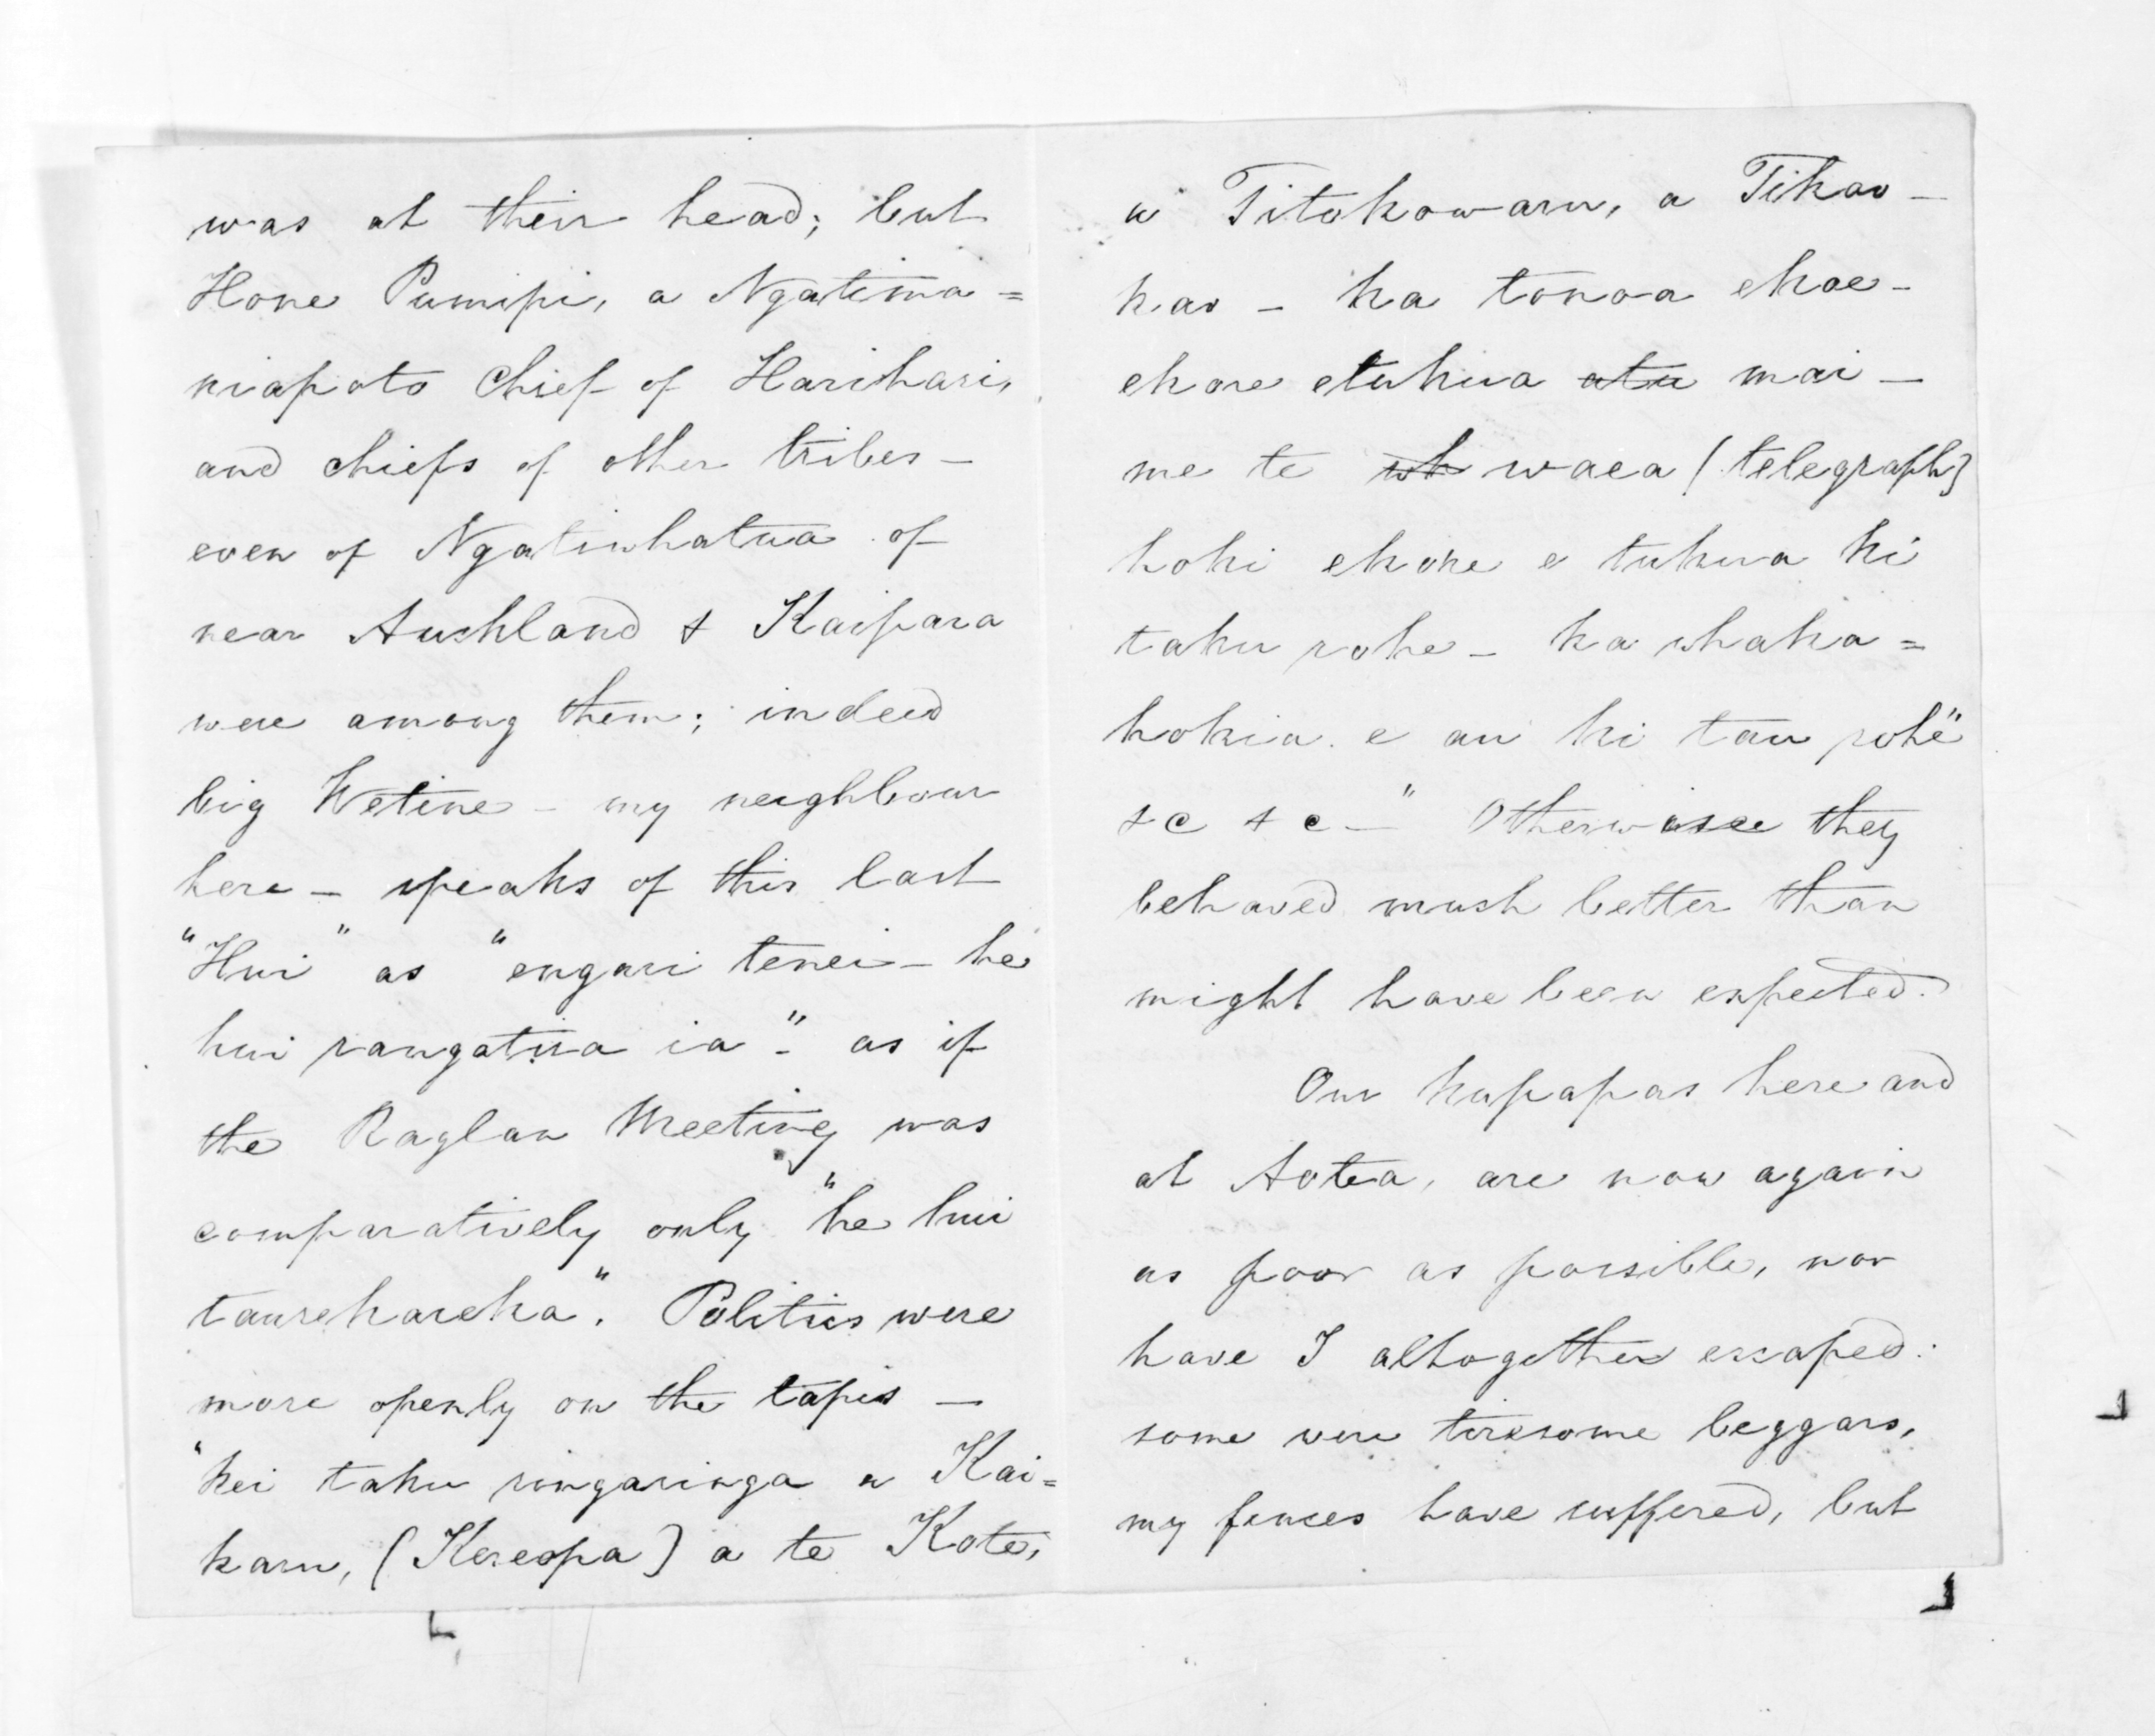 was at their head; but
Hone Pumipi, a Ngatima=
niapoto Chief of Harihari,
and chiefs of other tribes –
even of Ngatiwhatua of
near Auckland & Kaipara
were among them; indeed
big Wetine – my neighbour
here – speaks of this last
"Hui" as "engari tenei – he
hui rangatira ia" – as if
the Raglan Meeting was
comparatively only "he hui
taurekareka". Politics were
more openly on the tapis –
"kei taku ringaringa a Kai=
karu, (Kereopa) a te Kote,
a Titokowaru, a Tikao –
kao – ka tonoa ekoe –
ekore etukua atu mai –
me te wh waea (telegraph)
hoki ekore e tukua ki
taku rohe – ka whaka=
hokia e au ki tau rohe"
&c &c –" Otherwise they
behaved much better than
might have been expected.
Our kupapas here and
at Aotea, are now again
as poor as possible, nor
have I altogether escaped:
some were tiresome beggars,
my fences have suffered, but